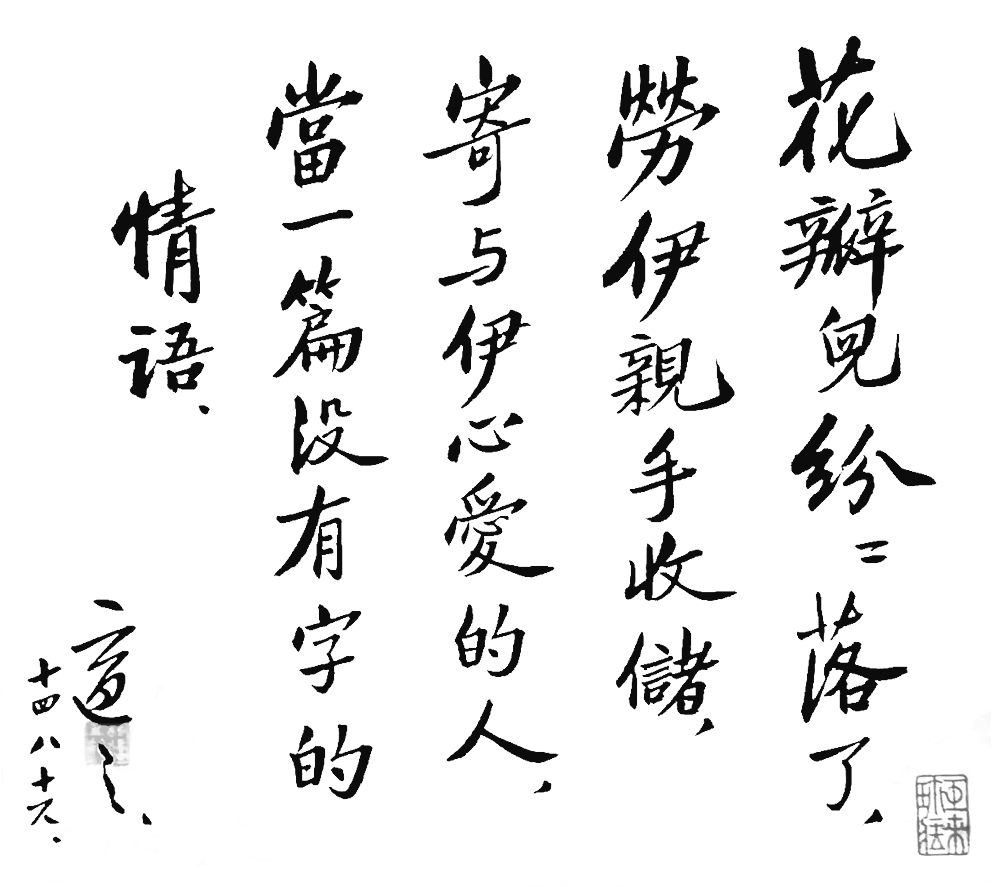 花瓣兒紛〻落了、
勞伊親手收儲、
寄与伊心愛的人、
當一篇没有字的
情語、
適之、
十四八十六、